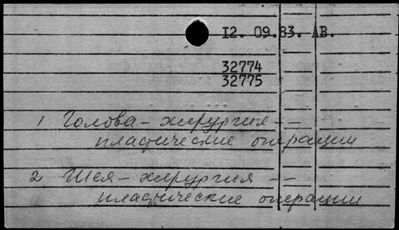 12. 09.83. АВ.
32774
32775
1 Голова - хирургия --
пластические операции
2 Шея - хирургия --
пластические операции